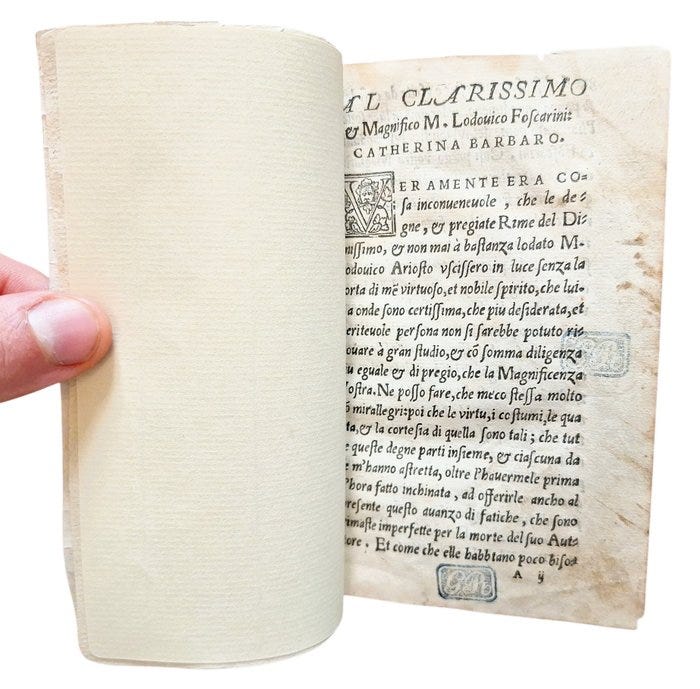 AL CLARISSIMO
& Magnifico M. Lodouico Foſcarini:
CATHERINA BARBARO.
VERAMENTE ERA CO=
ſa inconueneuole, che le de=
gne, & pregiate Rime del Di=
niſſimo, & non mai à baſtanza lodato M.
odouico Arioſto vſciſſero in luce ſenza la
orta di mẽ virtuoſo, et nobile ſpirito, che lui=
a onde ſono certiſſima, che piu deſiderata, et
eriteuole perſona non ſi ſarebbe potuto ri=
ouare à gran ſtudio, & cõ ſomma diligenza
iu eguale & di pregio, che la Magnificenza
oſtra. Ne poſſo fare, che meco ſteſſa molto
õ mirallegri: poi che le virtu, i coſtumi, le qua
ta, & la corteſia di quella ſono tali; che tut
e queſte degne parti inſieme, & ciaſcuna da
e m'hanno aſtretta, oltre l'hauermele prima
l'hora fatto inchinata, ad offerirle ancho al
preſente queſto auanzo di fatiche, che ſono
rimaſte imperfette per la morte del ſuo Aut=
tore. Et come che elle habbtano poco biſo=
A ij